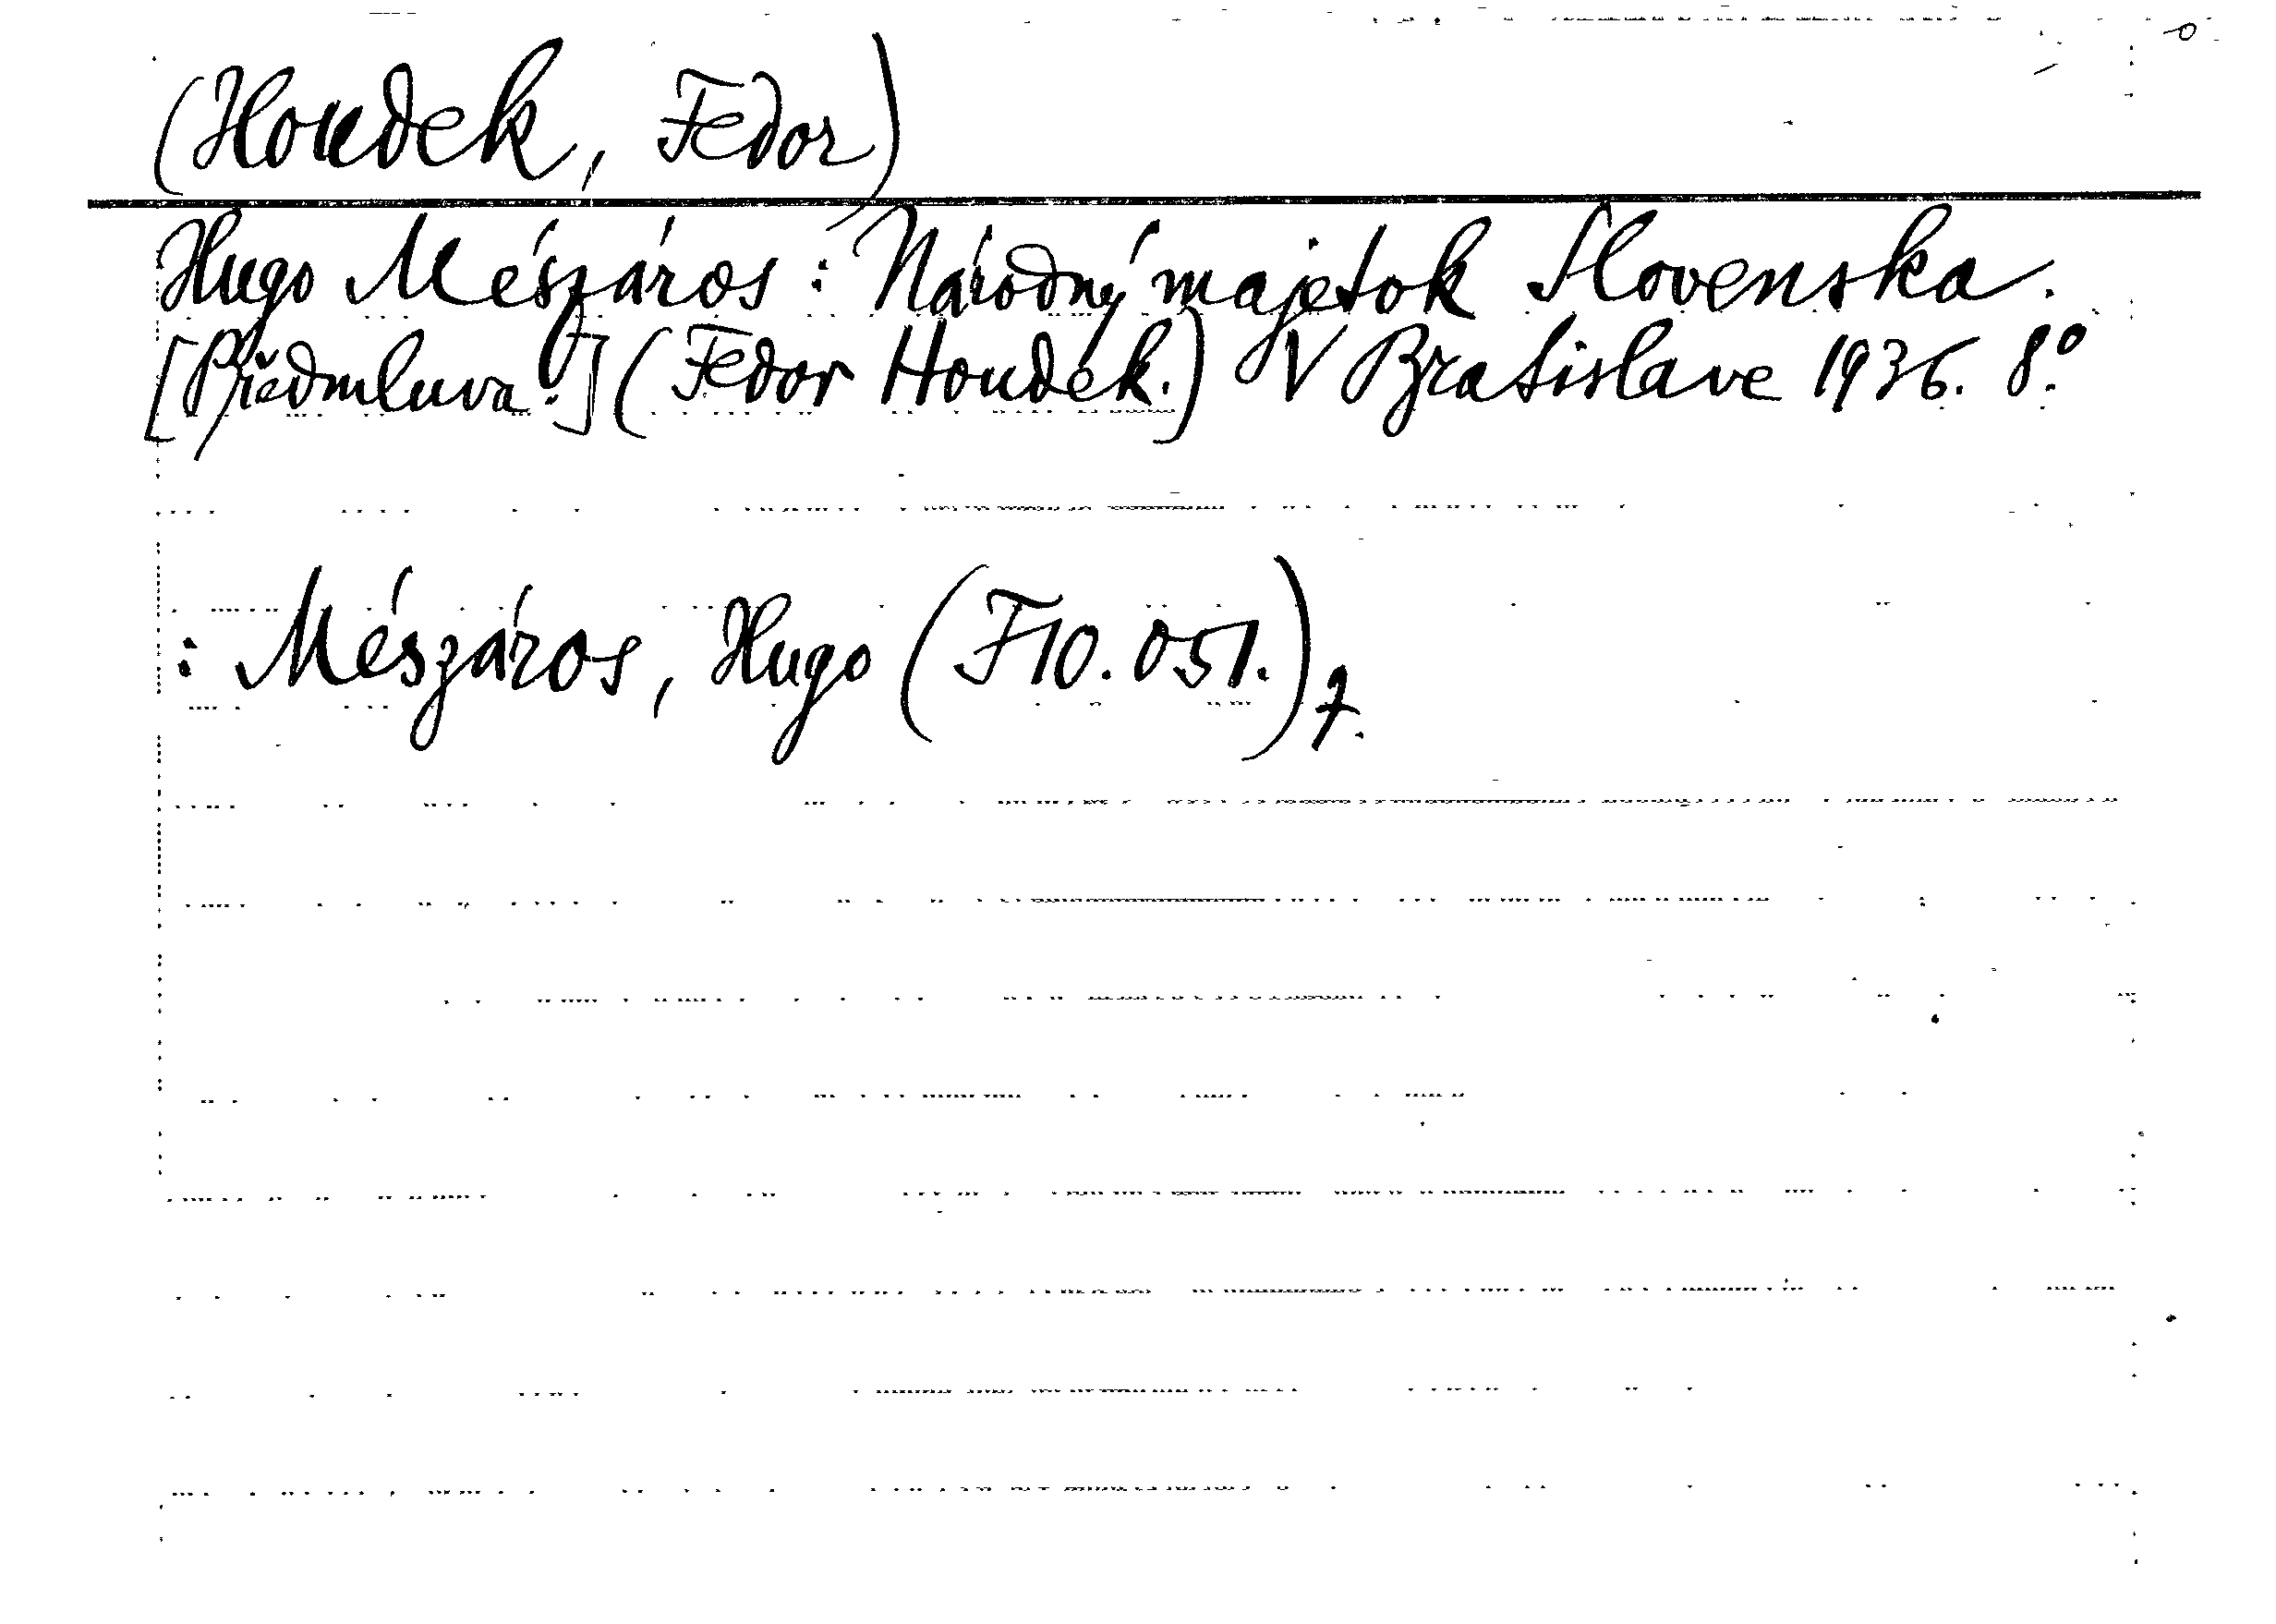 (Houdek, Fedor)
Hugo Mészáros: Národný majetok Slovenska.
[Předmluva.] (Fedor Houdek.) V Bratislave 1936. 8°.
: Mészáros, Hugo (F10.051.) 7.